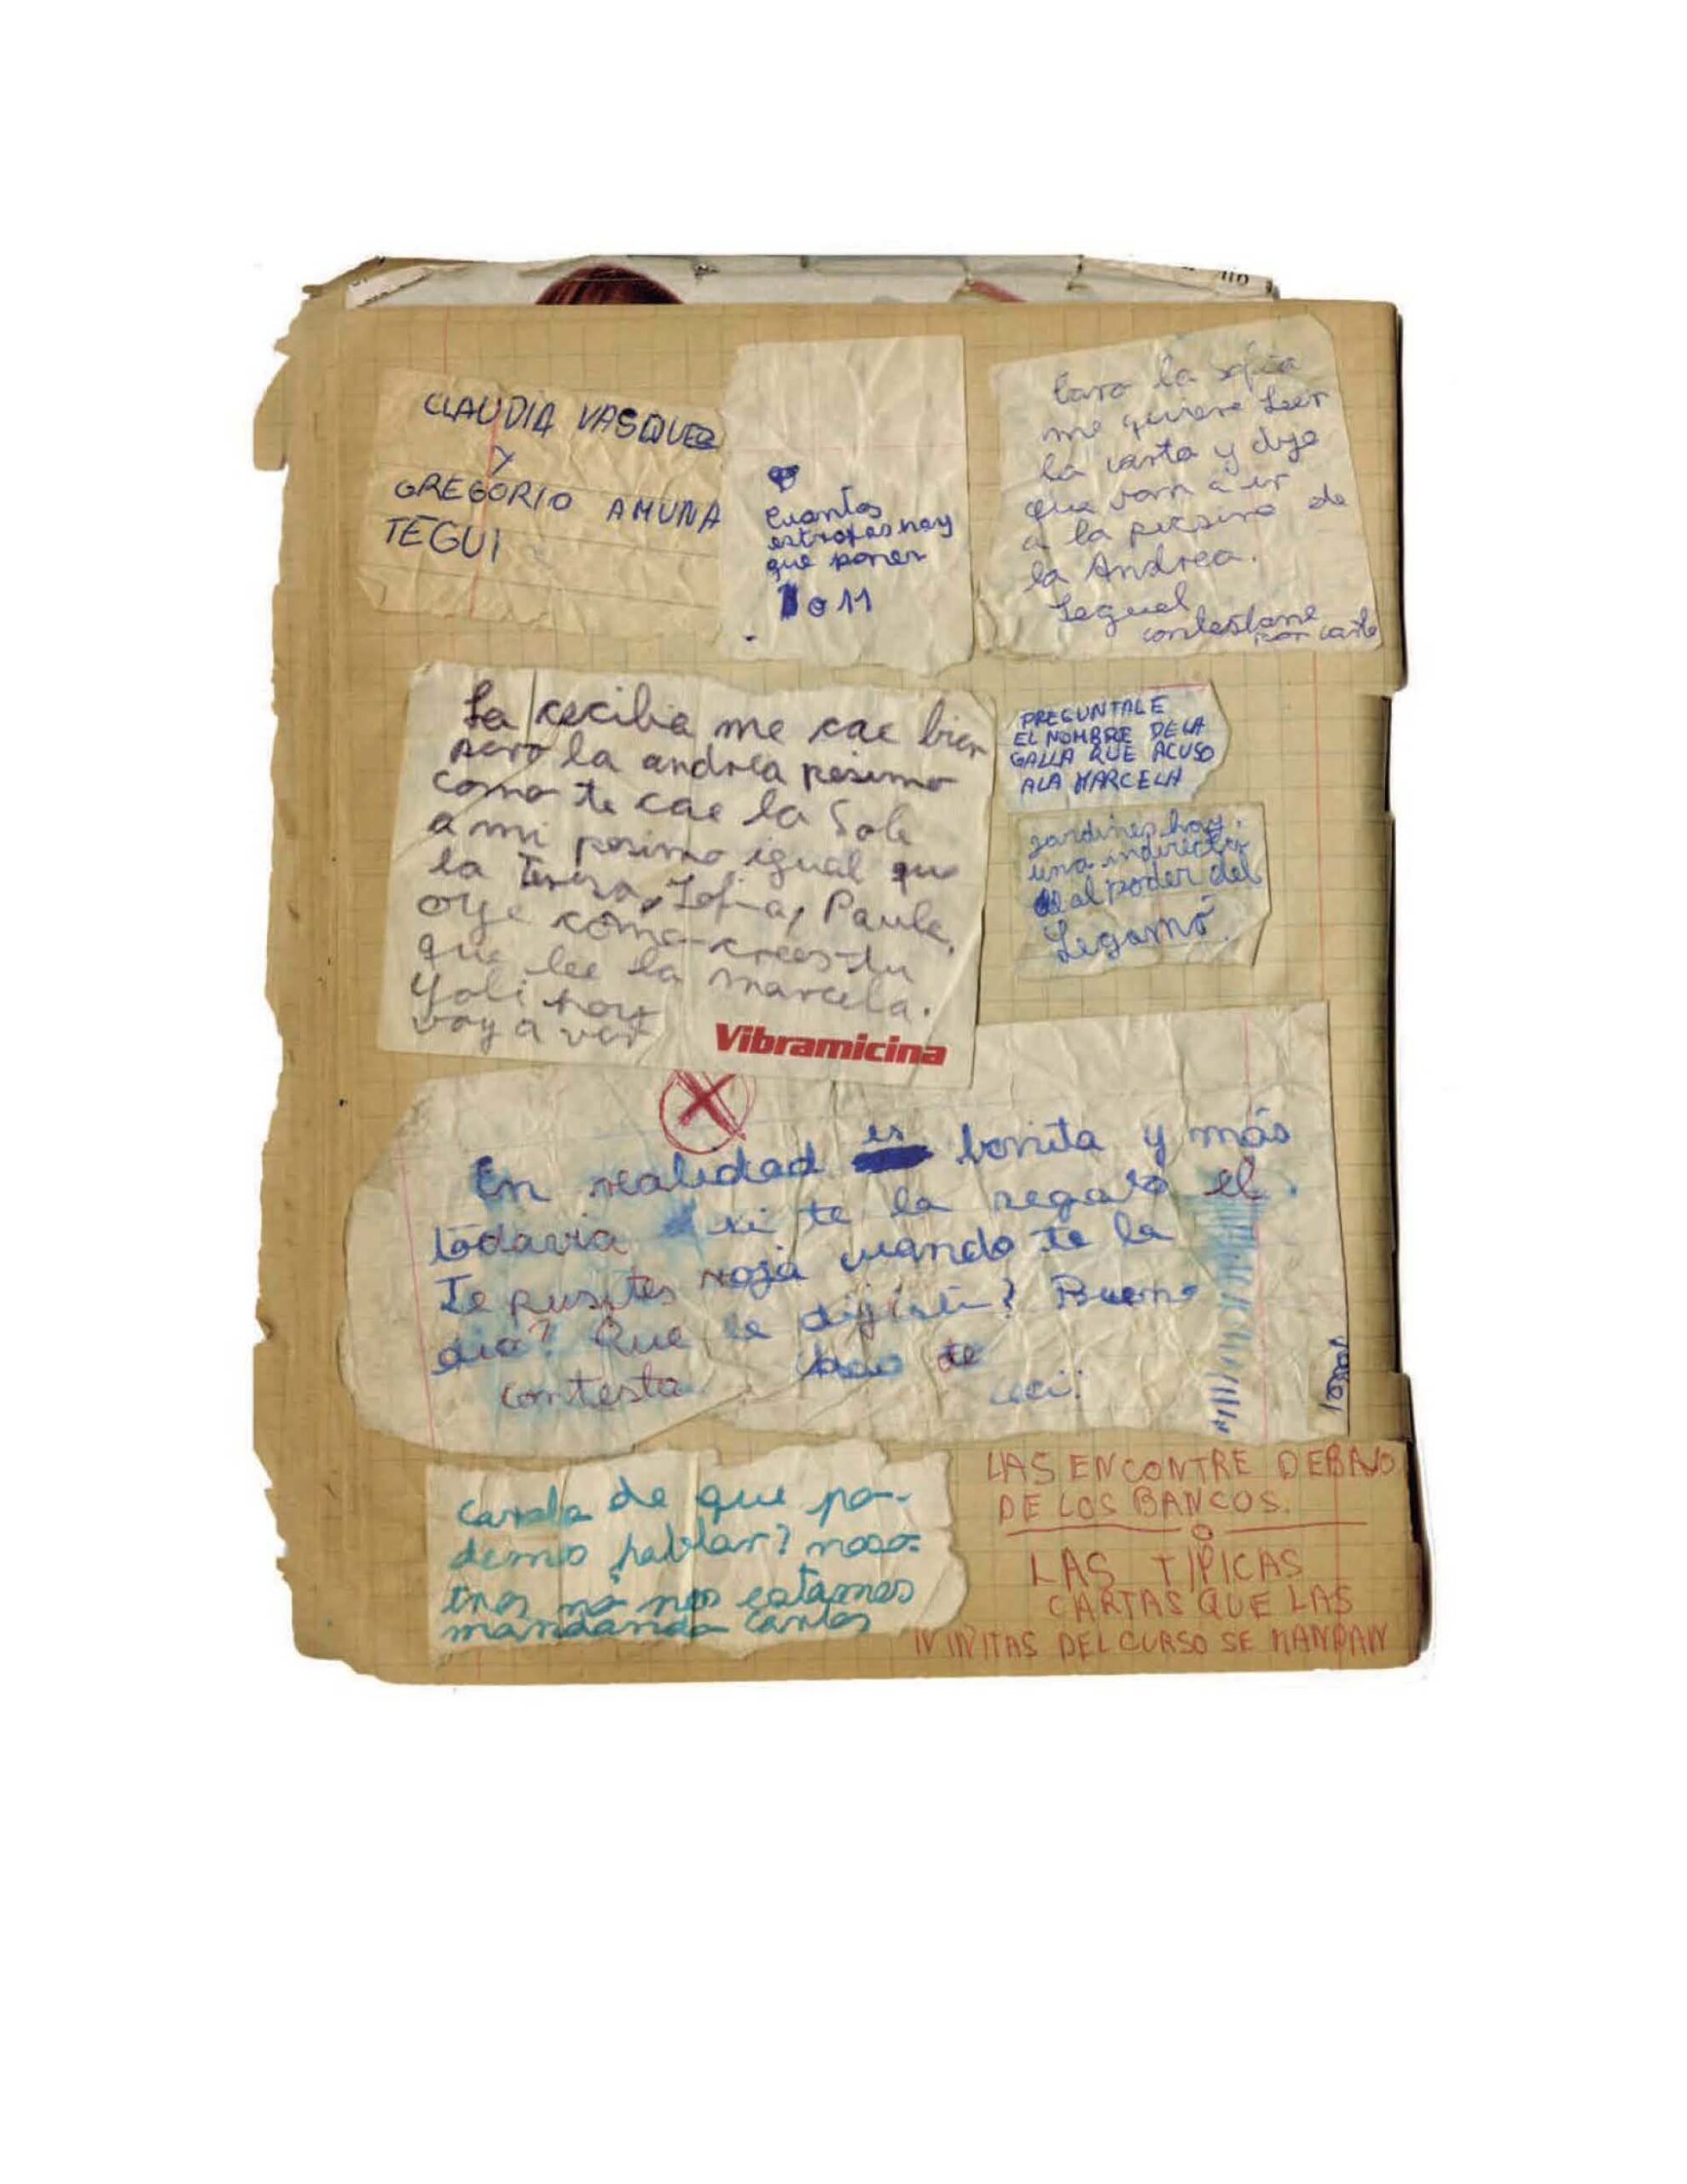 CLAUDIA VASQUEZ
Y
GREGORIO AMUNA
TEGUI
Cuantas
estrofas hay
que poner
o 11
Caro la Sofia
me quiere leer
la carta y dijo
que van a ir
a la picsina de
la Andrea.
contestame
por carta
La cecilia me cae bien
pero la andrea pesimo
como te cae la Sole
a mi pesimo igual que
la Teresa, Sofia, Paula,
oye como crees tu
que lee la marcela.
Yoli hoy
voy a ver
Vibramicina
PREGUNTALE
EL NOMBRE DE LA
GALLA QUE ACUSO
A LA MARCELA
jardines hay.
una indirecta
al poder del
X
En realidad es bonita y más
todavia si te la regaló el.
Te pusites roja cuando te la
dio? Que le dijiste? Bueno
contesta chao te
ceci:
Carola de que po-
demos hablar? noso-
tras no nos estamos
mandando cartas
LAS ENCONTRE DEBAJO
DE LOS BANCOS.
LAS TIPICAS
CARTAS QUE LAS
NIÑITAS DEL CURSO SE MANDAN